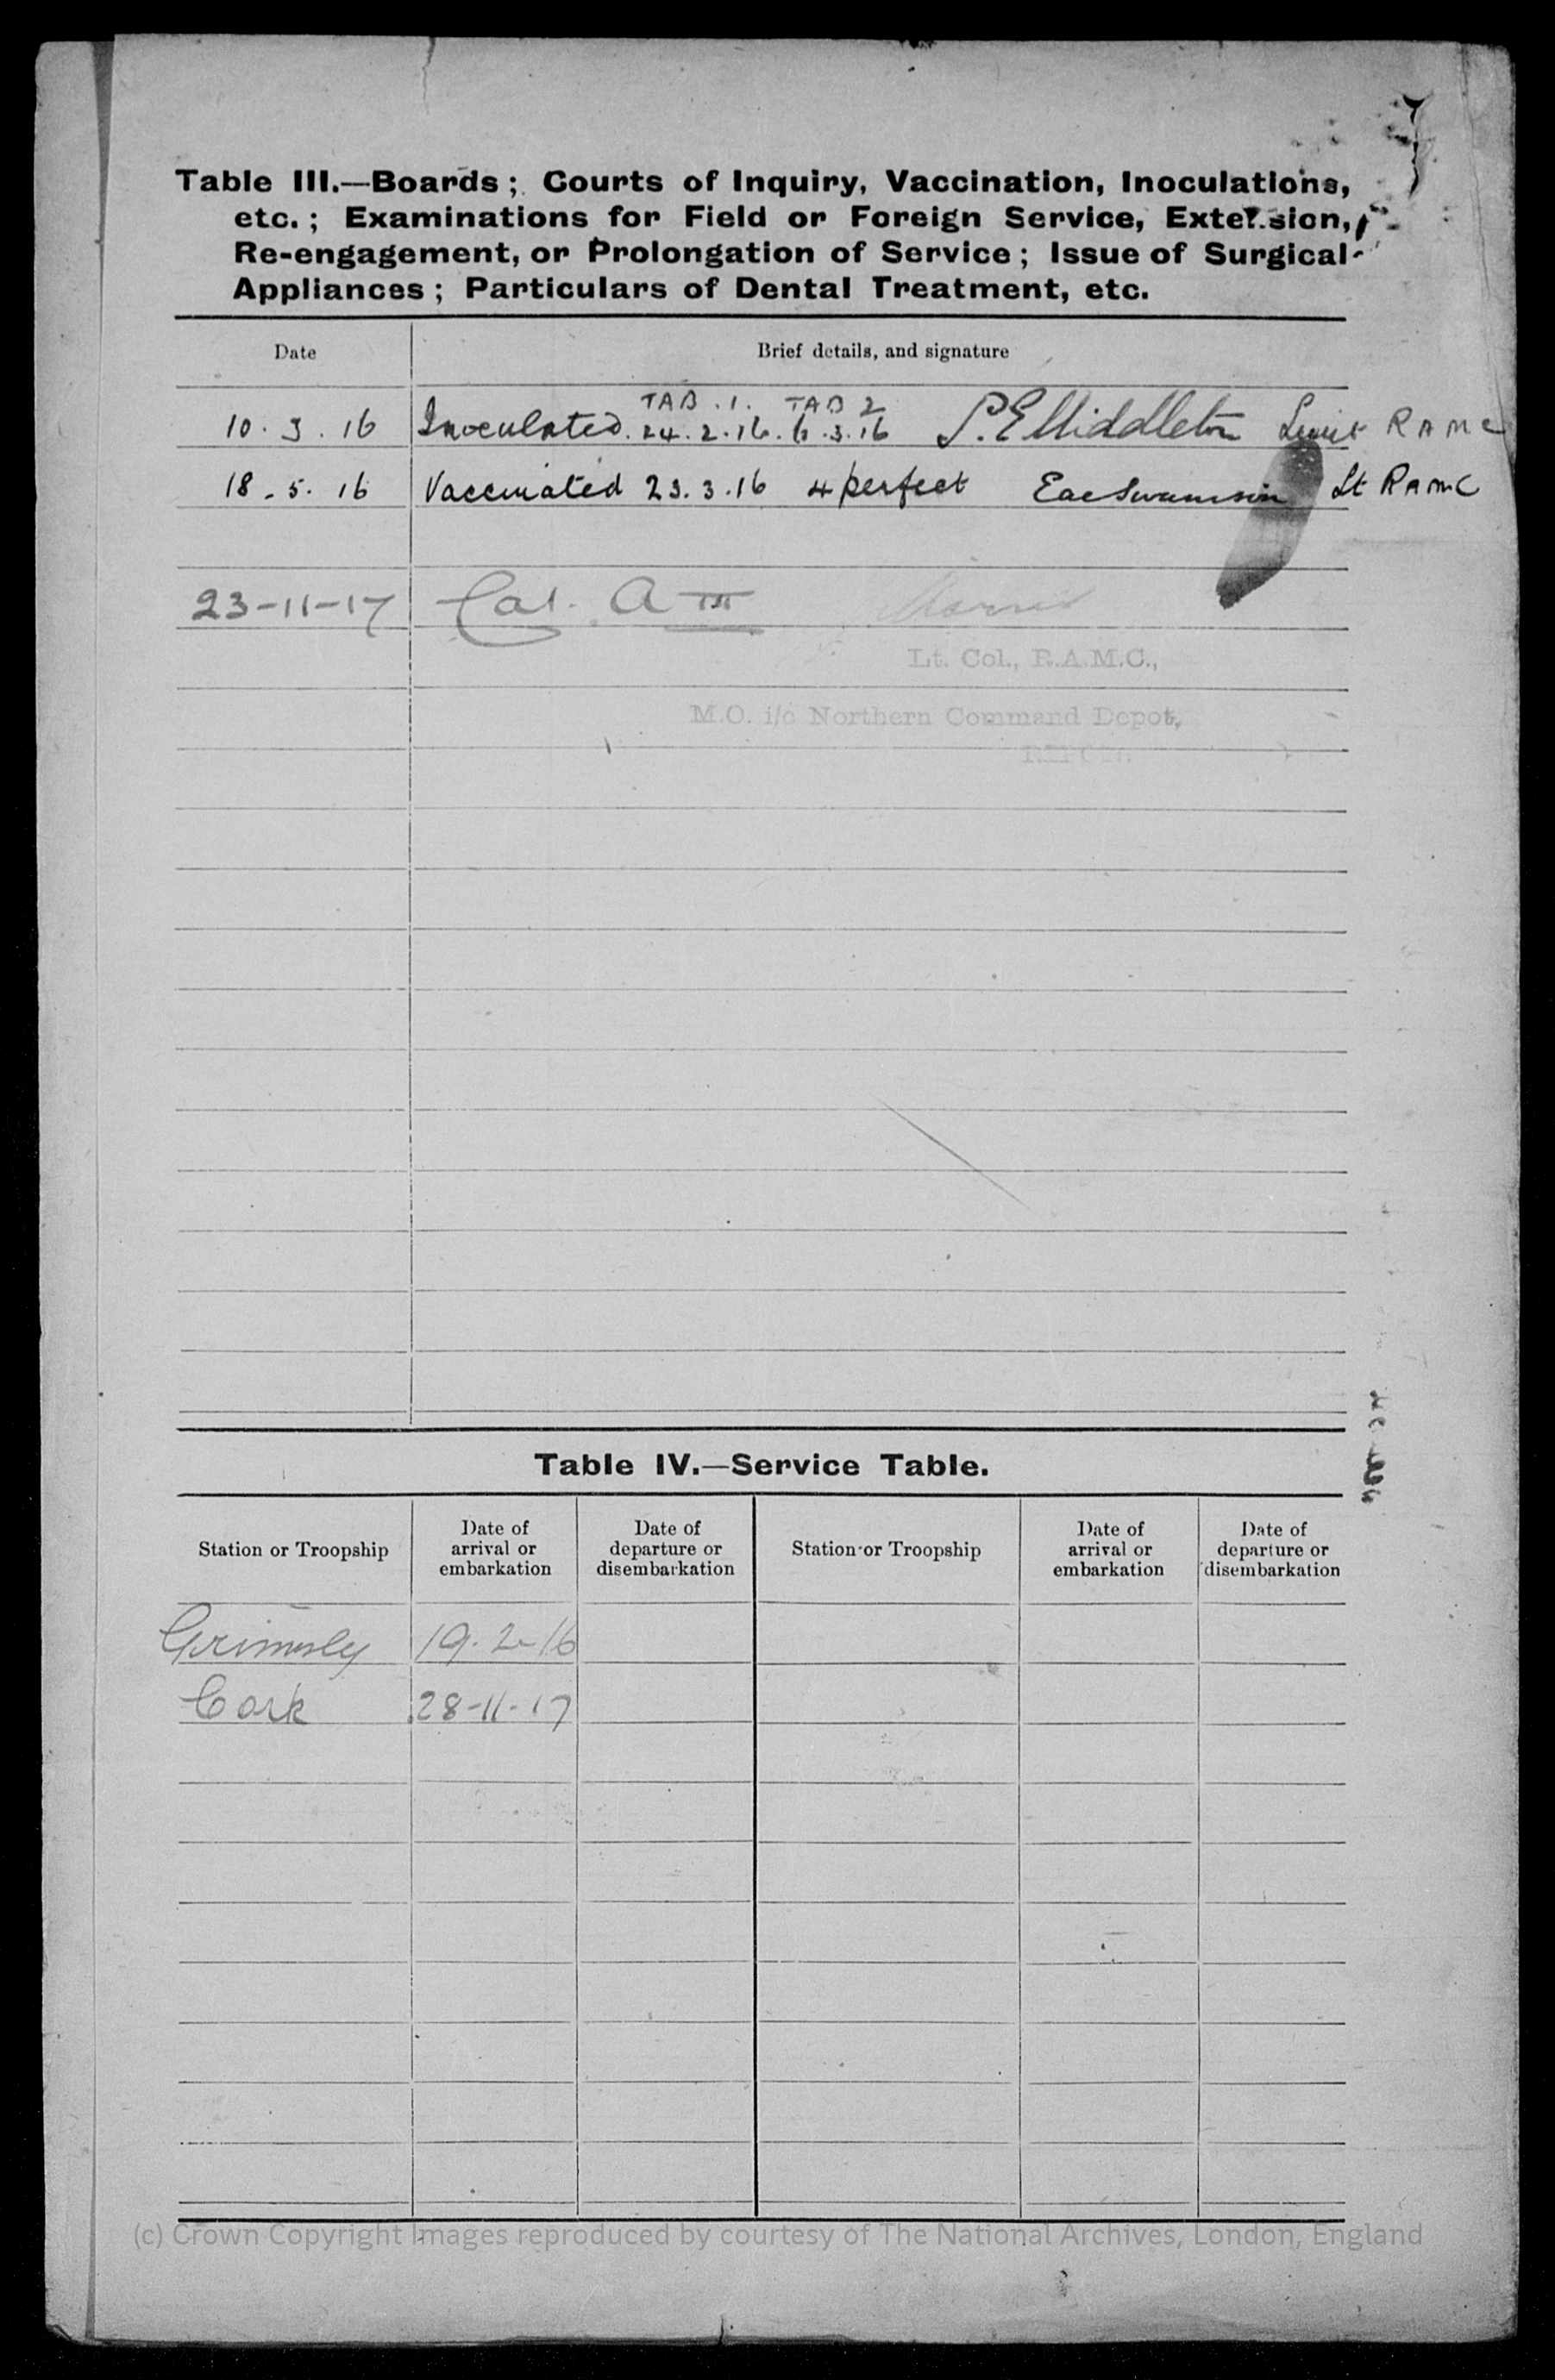 Table III.—Boards; Courts of Inquiry, Vaccination, Inoculations,
etc.; Examinations for Field or Foreign Service, Extension,
Re-engagement, or Prolongation of Service; Issue of Surgical
Appliances; Particulars of Dental Treatment, etc.
Date Brief details, and signature
TAB.1. TAB 2
10.3.16 Inoculated. 24.2.16. 6.3.16 Middleton Lieut RAMC
18.5.16 Vaccinated 23.3.16 4 perfect Swainson Lt RAMC
23-11-17 Cat. A III
Lt. Col., R.A.M.C.,
M.O. i/c Northern Command Depot,
Table IV.—Service Table.
Station or Troopship Date of arrival or embarkation Date of departure or disembarkation Station or Troopship Date of arrival or embarkation Date of departure or disembarkation
Grimsby 19.2-16
Cork 28-11-17
(c) Crown Copyright Images reproduced by courtesy of The National Archives, London, England